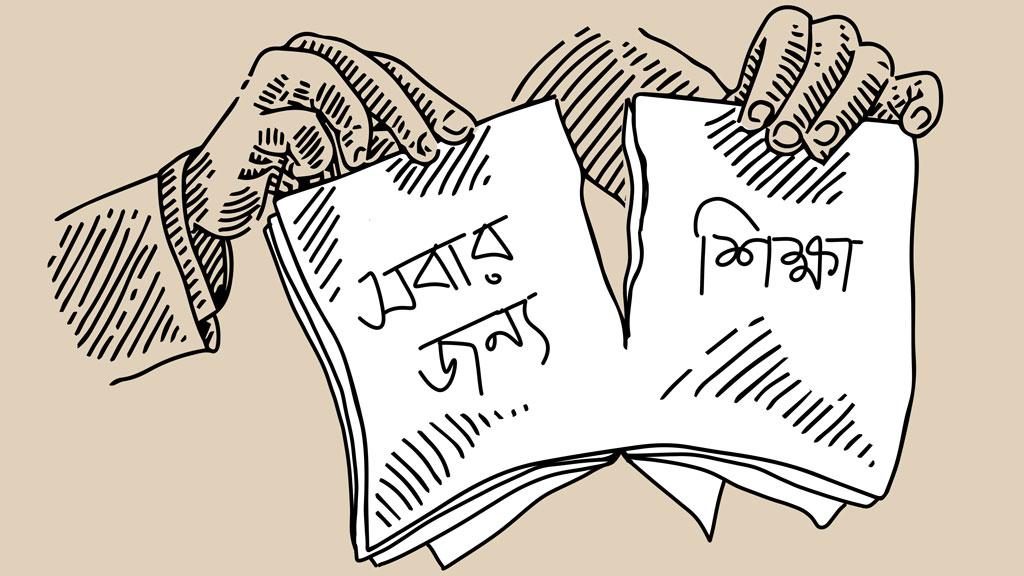 সবার
জন্য
শিক্ষা